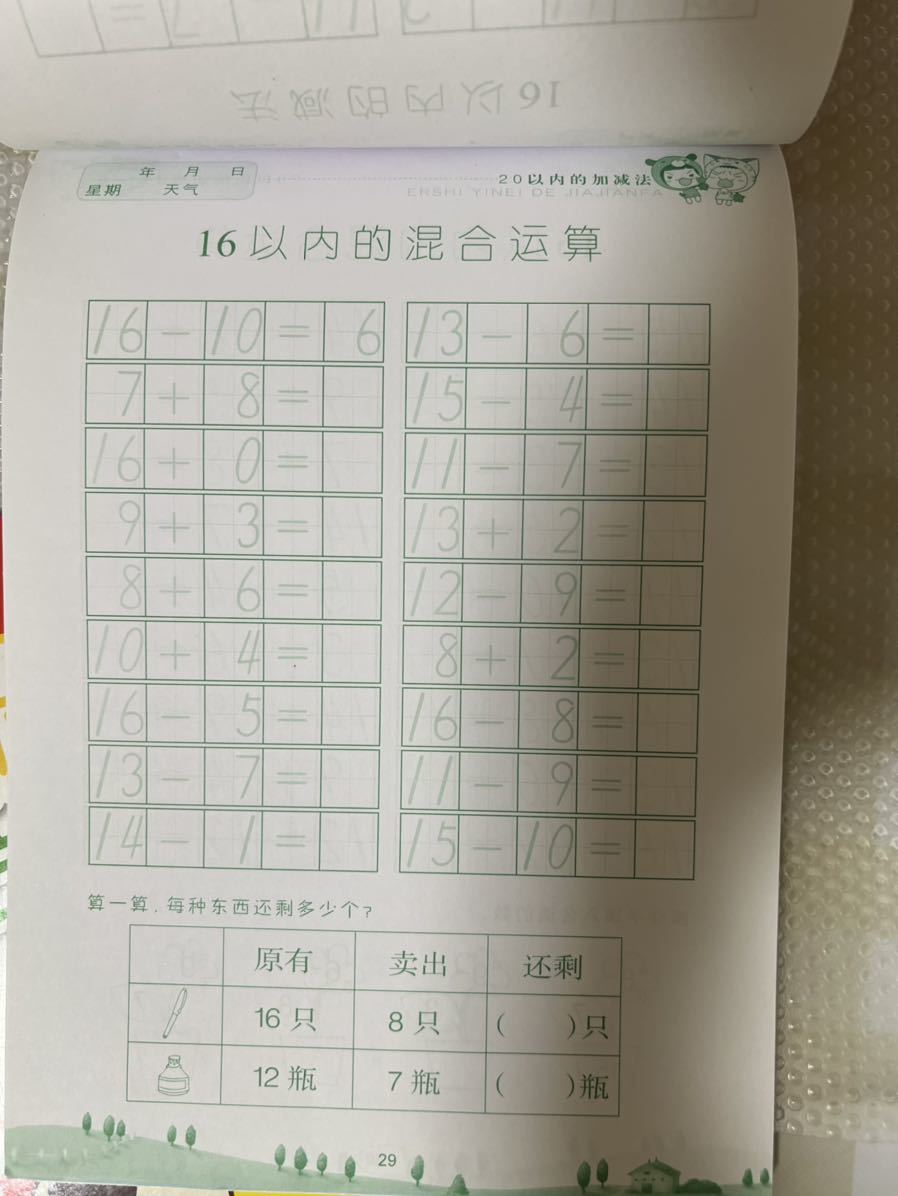 16以内的减法
年 月 日
星期 天气
20以内的加减法
ERSHI YINEI DE JIAJIANFA
16以内的混合运算
16 - 10 = 6 13 - 6 =
7 + 8 = 15 - 4 =
16 + 0 = 11 - 7 =
9 + 3 = 13 + 2 =
8 + 6 = 12 - 9 =
10 + 4 = 8 + 2 =
16 - 5 = 16 - 8 =
13 - 7 = 11 - 9 =
14 - 1 = 15 - 10 =
算一算，每种东西还剩多少个？
原有 卖出 还剩
16只 8只 ( )只
12瓶 7瓶 ( )瓶
29